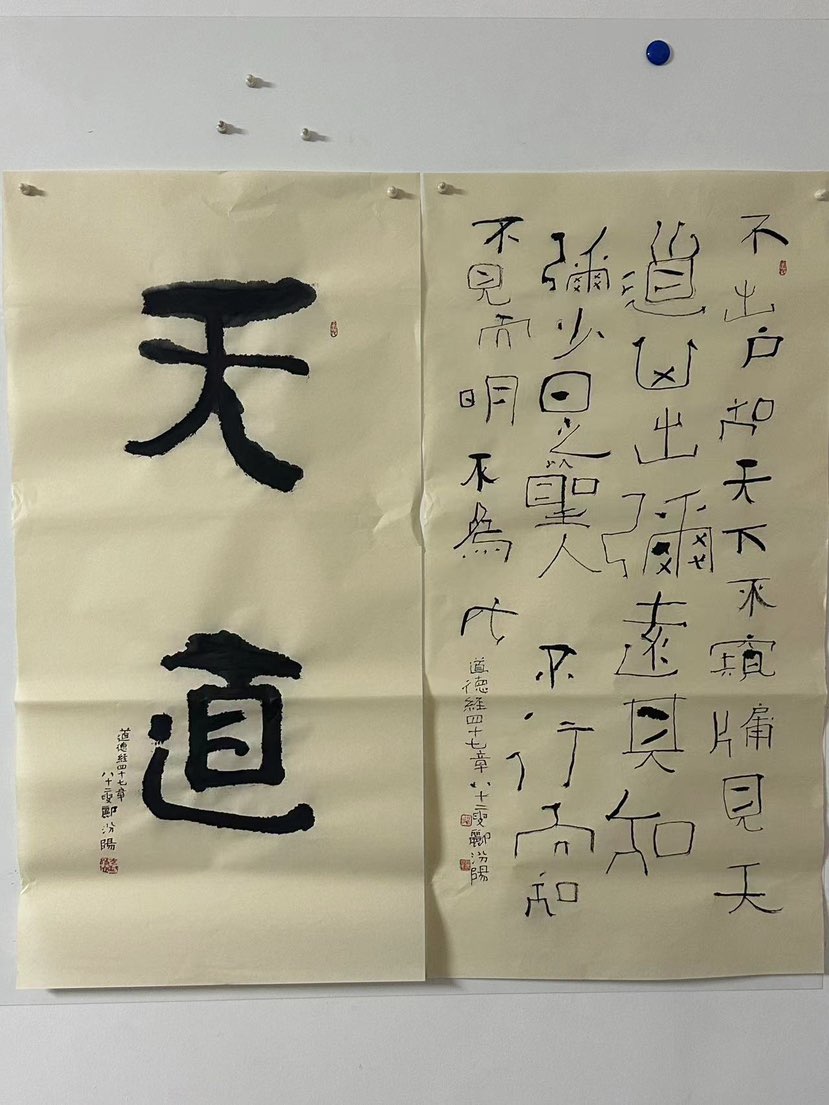 天道
道德經四十七章
八十二叟酈汾陽
不出戶知天下不窺牖見天
道其出彌遠其知
彌少是以聖人不行而知
不見而明不為成
道德經四十七章八十二叟酈汾陽